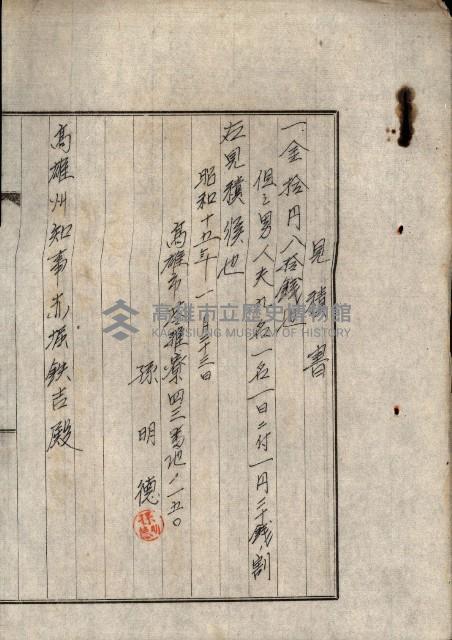 見積書
一金拾円八拾銭也
但シ男人夫九名一名一日ニ付一円二十銭ノ割
右見積候也
昭和十五年一月二十三日
高雄市 雅寮四三番地ノ一五〇
孫明德
高雄州知事赤堀鉄吉殿
高雄市立歷史博物館
KAOHSIUNG MUSEUM OF HISTORY